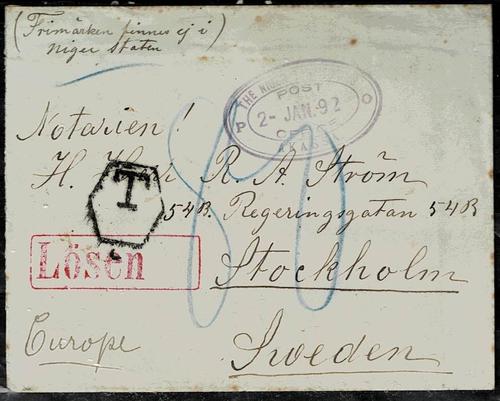 (Frimärken finnes ej i
Niger Staten)
THE NIGER
POST
2- JAN. 92
OFFICE
AKASSA
P
O
Notarien!
H. Herr R. A. Ström
T
54B. Regeringsgatan 54B
Lösen
80
Stockholm
Europe
Sweden